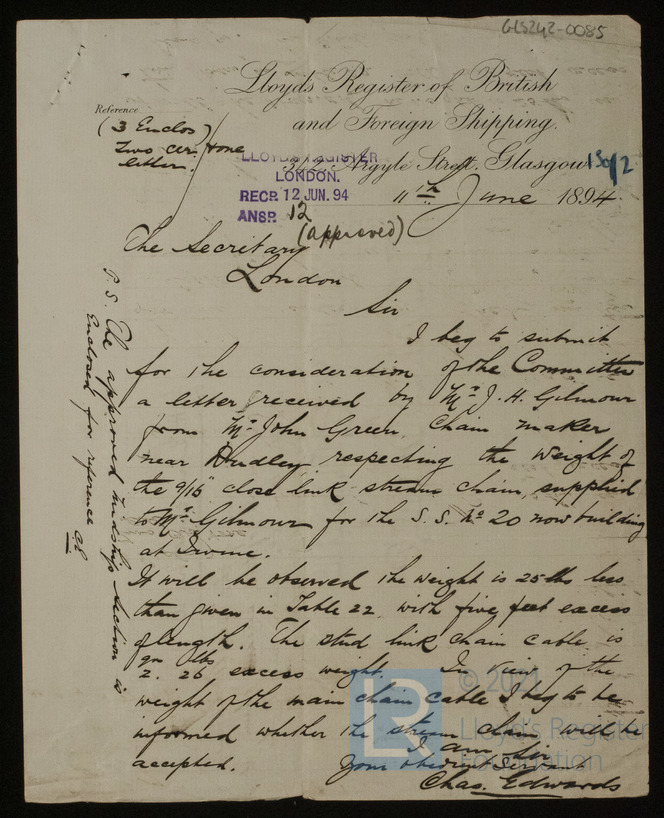 GLS242-0085
Lloyds Register of British
and Foreign Shipping.
Reference
(3 Enclos)
Two cer: & one
letter.
342 Argyle Street. Glasgow
LLOYD'S REGISTER
LONDON.
RECD. 12 JUN. 94
ANSD. 12
(approved)
11th June 1894
The Secretary
London
Sir
I beg to submit
for the consideration of the Committee
a letter received by Mr. J. H. Gilmour
from Mr. John Green, Chain maker
near Dudley respecting the weight of
the 9/16" close link stream chain, supplied
to Mr. Gilmour for the S. S. No 20 now building
at Irvine.
It will be observed the weight is 25 lbs less
than given in Table 22, with five feet excess
of length. The stud link chain cable is
qrs lbs
2. 26 excess weight. In view of the
weight of the main chain cable I beg to be
informed whether the stream chain will be
accepted.
I am Sir
Your obedient servant
Chas. Edwards
P.S. The approved midship section is
Enclosed for reference CE
© 2021
Lloyd's Register
Foundation
LR